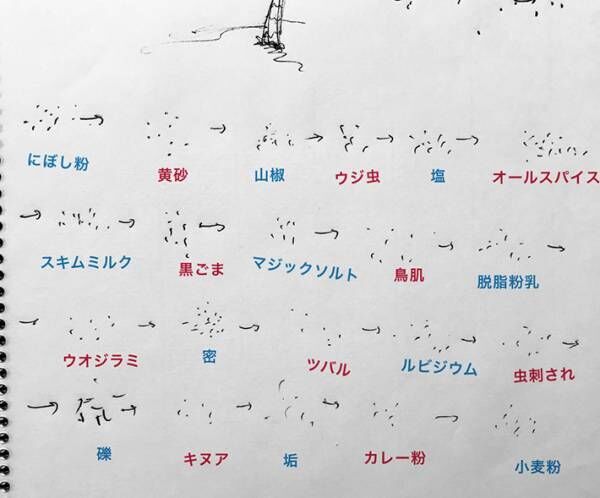 にぼし粉 黄砂 山椒 ウジ虫 塩 オールスパイス
スキムミルク 黒ごま マジックソルト 鳥肌 脱脂粉乳
ウオジラミ 密 ツバル ルビジウム 虫刺され
礫 キヌア 垢 カレー粉 小麦粉